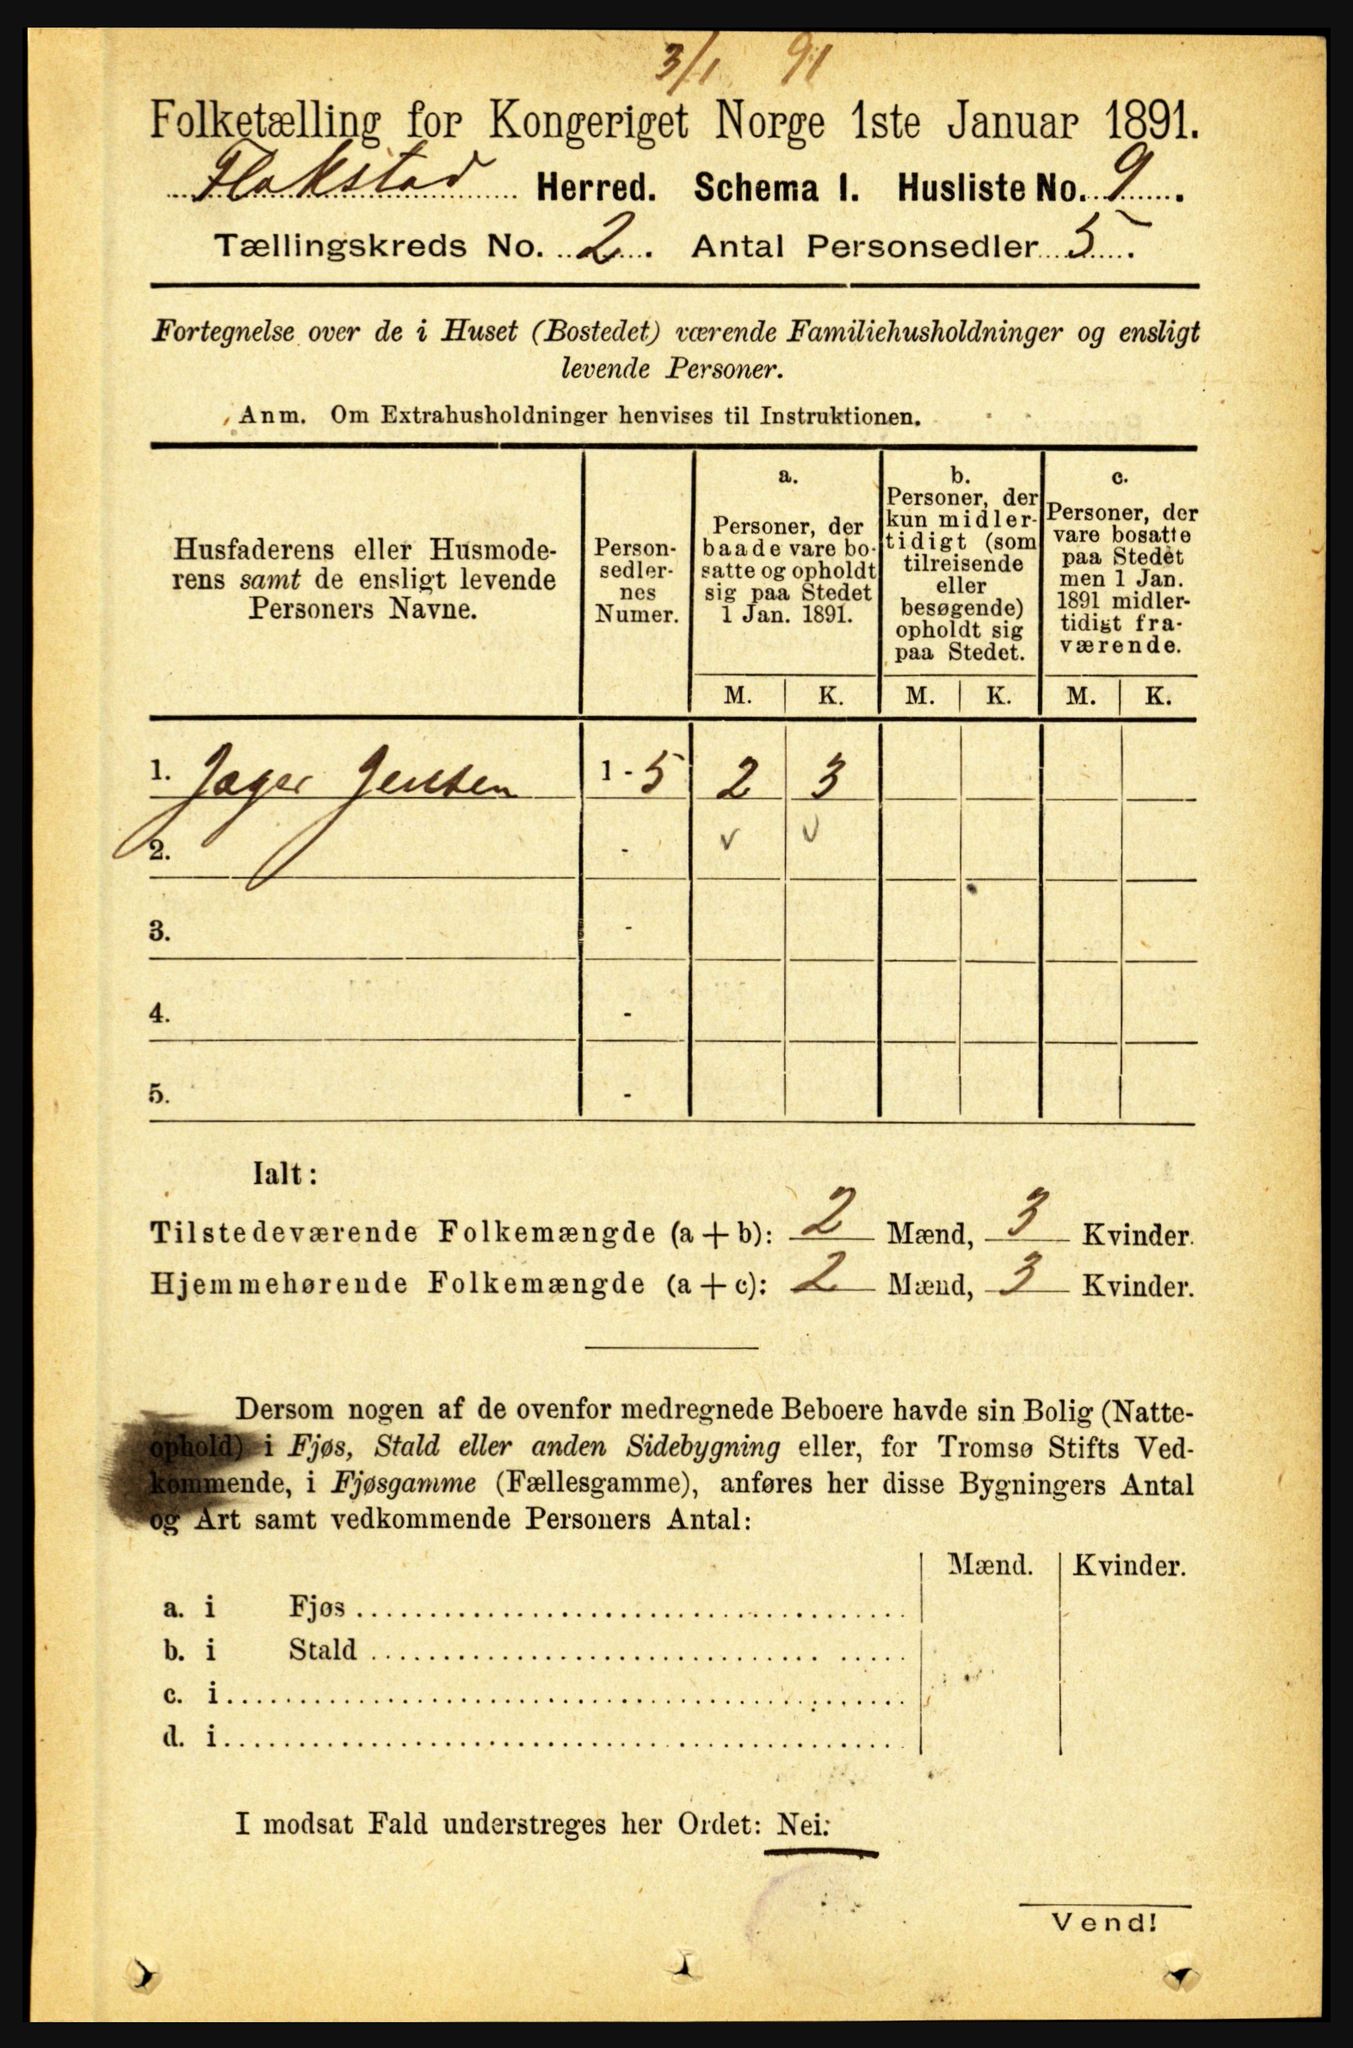 3/1 91
Folketælling for Kongeriget Norge 1ste Januar 1891.
Flakstad Herred. Schema I. Husliste No. 9.
Tællingskreds No. 2. Antal Personsedler 5.
Fortegnelse over de i Huset (Bostedet) værende Familiehusholdninger og ensligt
levende Personer.
Anm. Om Extrahusholdninger henvises til Instruktionen.
Husfaderens eller Husmode-
rens samt de ensligt levende
Personers Navne.
Person-
sedler-
nes
Numer.
a.
Personer, der
baade vare bo-
satte og opholdt
sig paa Stedet
1 Jan. 1891.
b.
Personer, der
kun midler-
tidigt (som
tilreisende
eller
besøgende)
opholdt sig
paa Stedet.
c.
Personer, der
vare bosatte
paa Stedet
men 1 Jan.
1891 midler-
tidigt fra-
værende.
M. K. M. K. M. K.
1. Jager Jensen 1 - 5 2 3
2. - v v
3. -
4. -
5. -
Ialt:
Tilstedeværende Folkemængde (a + b): 2 Mænd, 3 Kvinder.
Hjemmehørende Folkemængde (a + c): 2 Mænd, 3 Kvinder.
Dersom nogen af de ovenfor medregnede Beboere havde sin Bolig (Natte-
ophold) i Fjøs, Stald eller anden Sidebygning eller, for Tromsø Stifts Ved-
kommende, i Fjøsgamme (Fællesgamme), anføres her disse Bygningers Antal
og Art samt vedkommende Personers Antal:
Mænd. Kvinder.
a. i Fjøs
b. i Stald
c. i
d. i
I modsat Fald understreges her Ordet: Nei.
Vend!